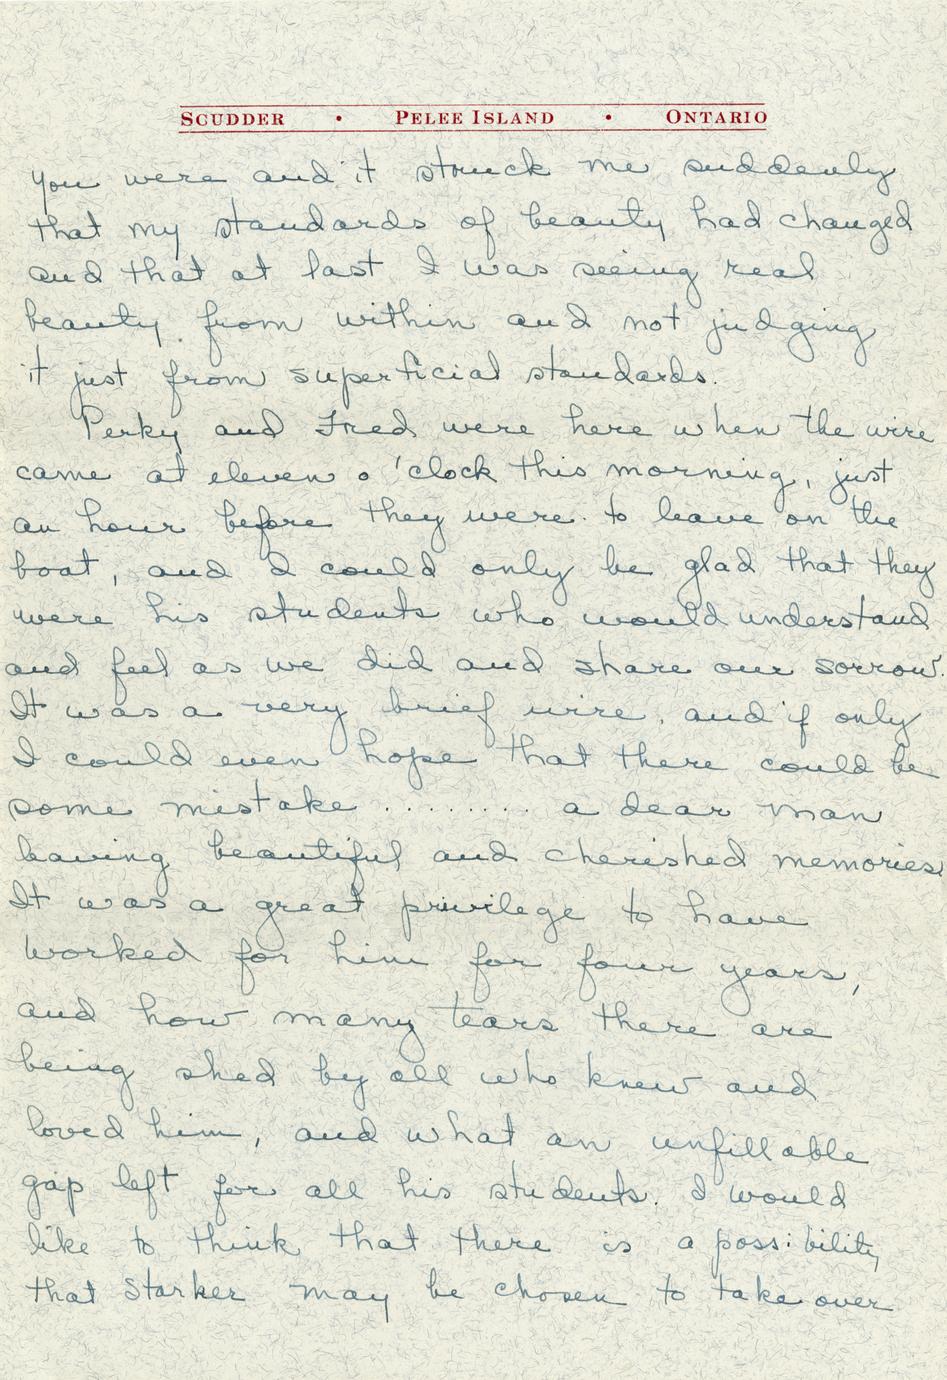 SCUDDER • PELEE ISLAND • ONTARIO
you were and it struck me suddenly
that my standards of beauty had changed
and that at last I was seeing real
beauty from within and not judging
it just from superficial standards.
Perky and Fred were here when the wire
came at eleven o'clock this morning, just
an hour before they were to leave on the
boat, and I could only be glad that they
were his students who would understand
and feel as we did and share our sorrow.
It was a very brief wire, and if only
I could even hope that there could be
some mistake ......... a dear man
leaving beautiful and cherished memories.
It was a great privilege to have
worked for him for four years,
and how many tears there are
being shed by all who knew and
loved him, and what an unfillable
gap left for all his students. I would
like to think that there is a possibility
that Starker may be chosen to take over